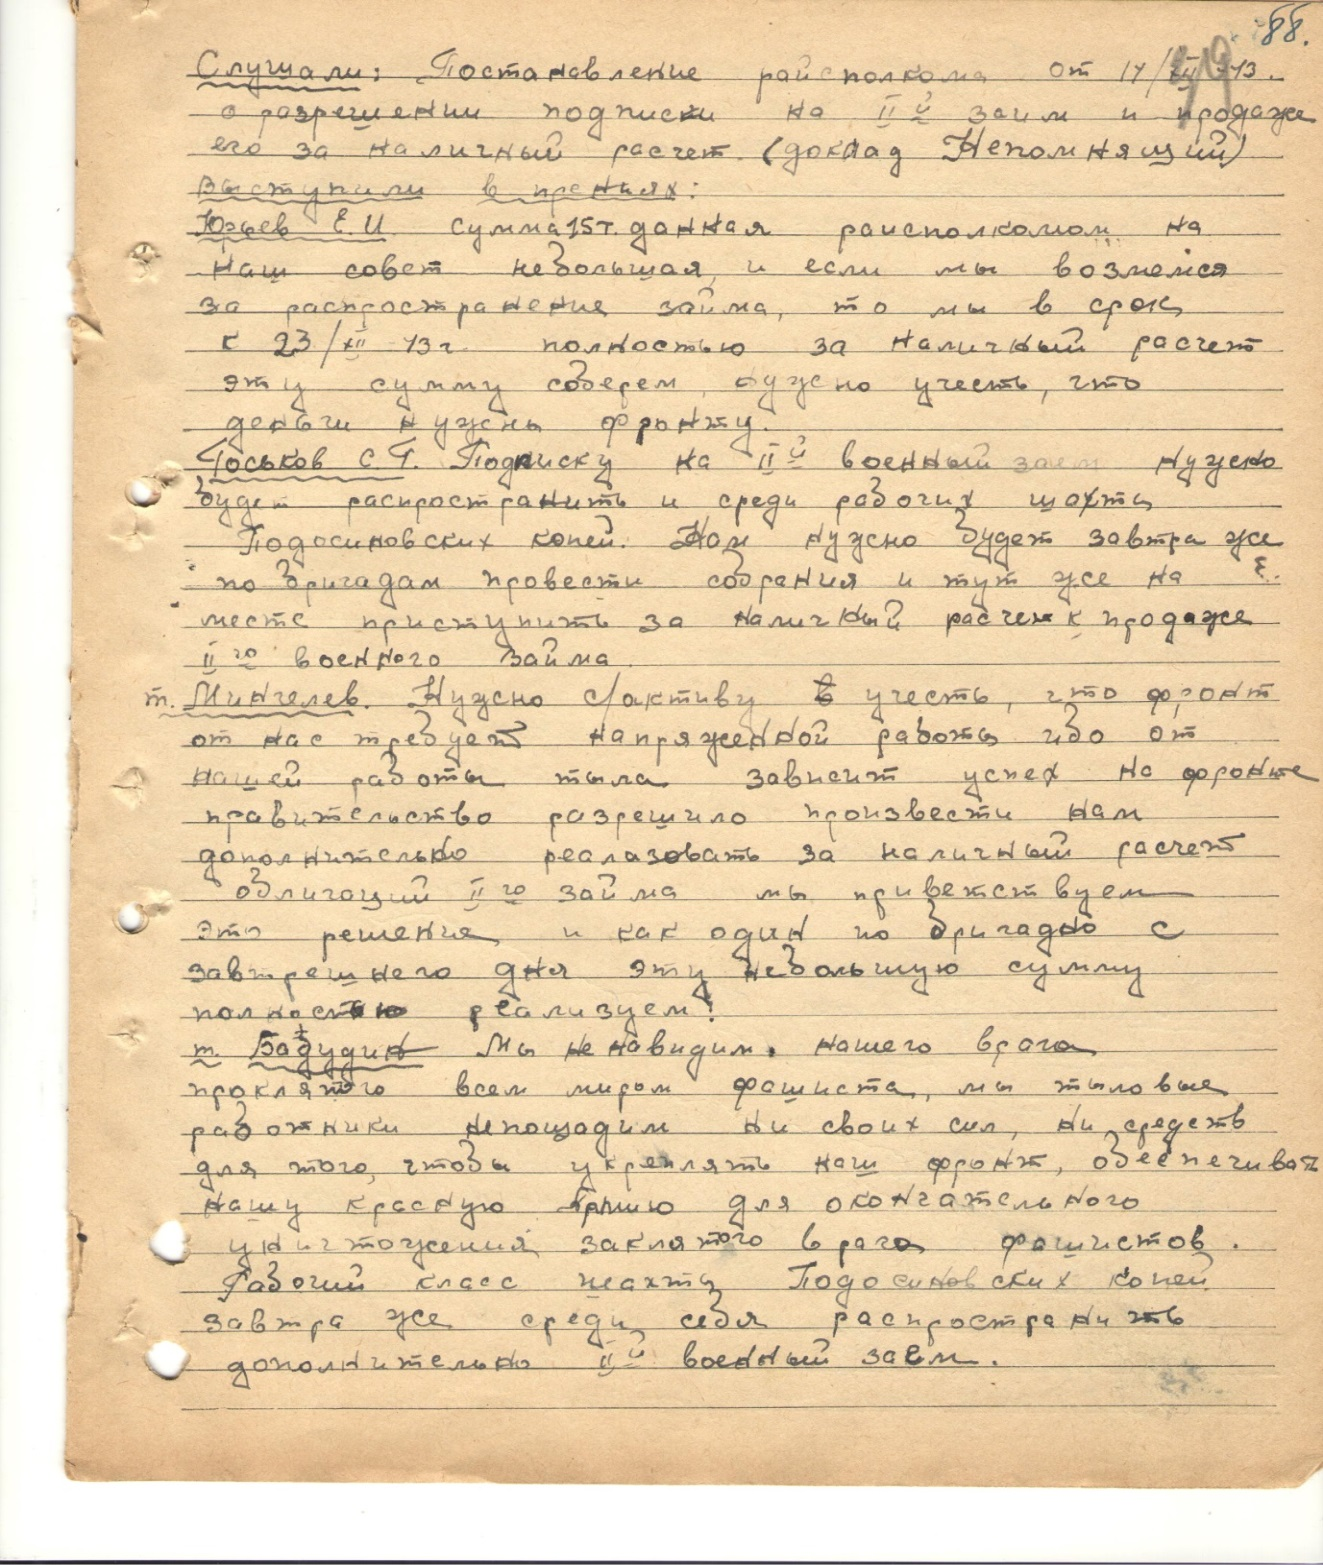 88.
Слушали: Постановление райсполкома от 17/XII 43.
о разрешении подписки на II й заим и продаже
его за наличный расчет. (доклад Непомнящий)
Выступили в прениях:
Юрьев Е.И. Сумма 15т. данная раисполкомом на
наш совет небольшая, и если мы возмемся
за распространение займа, то мы в срок
к 23/XII 43 г. полностью за наличный расчет
эту сумму соберем, нужно учесть, что
деньги нужны фронту.
Тоськов С.Г. Подписку на II й военный заем нужно
будет распространить и среди рабочих шахты
Подосиновских копей. Нам нужно будет завтра же
по бригадам провести собрания и тут же на
месте приступить за наличный расчет к продаже
II го военного займа.
т. Мингелев. Нужно с/активу учесть, что фронт
от нас требует напряженной работы ибо от
нашей работы тыла зависит успех на фронте
правительство разрешило произвести нам
дополнительно реалазовать за наличный расчет
облигоций II го займа мы приветствуем
это решение, и как один по бригадно с
завтрешнего дня эту небольшую сумму
полностью реализуем!
т. Бабудин Мы ненавидим. нашего врага
проклятого всем миром фашиста, мы тыловые
работники непощадим ни своих сил, ни средств
для того, чтобы укреплять наш фронт, обеспечиват
нашу красную Армию для окончательного
уничтожения заклятого врага фашистов.
Рабочий класс шахты Подосиновских копей
завтра же среди себя распространить
дополнительно II й военный заем.